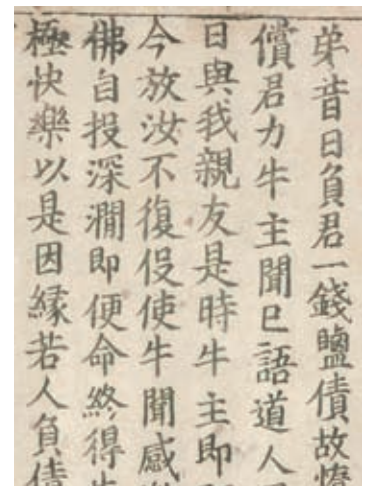 弟昔日負君一錢鹽債故
償君力牛主聞已語道人
日與我親友是時牛主即
今放汝不復役使牛聞感
佛自投深澗即便命終得
極快樂以是因緣若人負債